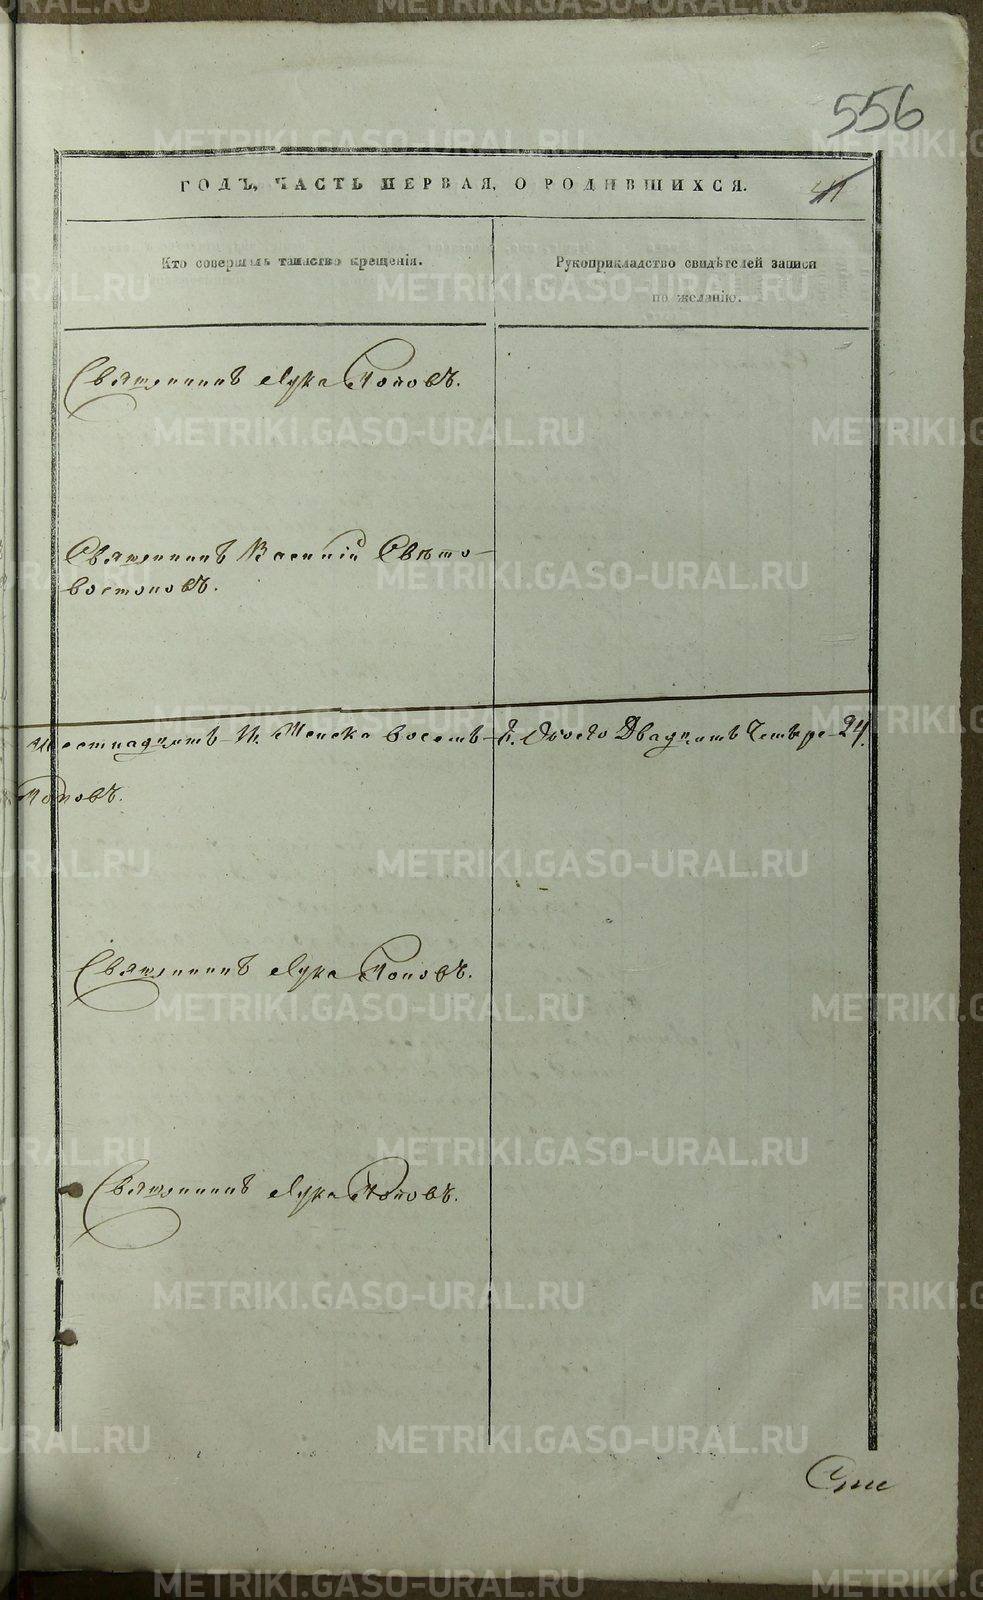 556
ГОДЪ, ЧАСТЬ ПЕРВАЯ, О РОДИВШИХСЯ.
Кто совершалъ таинство крещенія.
Рукоприкладство свидѣтелей записи
по желанію.
Священникъ Лука Поповъ.
Священникъ Василій Свѣто-
востоковъ.
шестнадцать И. Женска восемь - 8. Обоего Двадцать Четыре - 24.
Поповъ.
Священникъ Лука Поповъ.
Священникъ Лука Поповъ.
METRIKI.GASO-URAL.RU